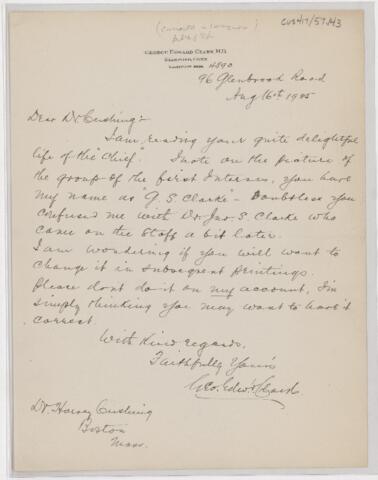 CUS417/57.143
GEORGE EDWARD CLARK M.D.
4890
96 Glenbrook Road
Aug 16th 1925
Dear Dr Cushing:-
I am reading your quite delightful
life of the "Chief." I note on the picture of
the group of the first Internes, you have
my name as "G. S. Clarke" - Doubtless you
confused me with Dr Jno. S. Clarke who
came on the Staff a bit later.
I am wondering if you will want to
change it in subsequent printings.
Please dont do it on my account, I'm
simply thinking you may want to have it
correct
With kind regards,
Faithfully Yours
Geo. Edw. Clark
Dr. Harvey Cushing
Boston
Mass.